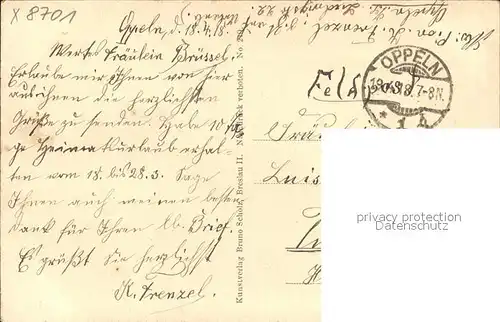 X 8701
Oppeln, d. 18.4.18.
Wertes Fräulein Brüssel.
Erlaube mir Ihnen von hier
aus Ihnen die herzlichsten
Grüße zu senden. Habe 10 Ta
ge Heimaturlaub erhal-
ten vom 18. bis 28.3. Sage
Ihnen auch meinen besten
Dank für Ihren lb. Brief.
Es grüßt Sie herzlichst
K. Trenzel.
Kunstverlag Bruno Scholz, Breslau II. Nachdruck verboten. No.
Oppeln
OPPELN
18.4.18.7-8N.
* 1 h
Feldpost
Fräu
Luis
privacy protection
Datenschutz